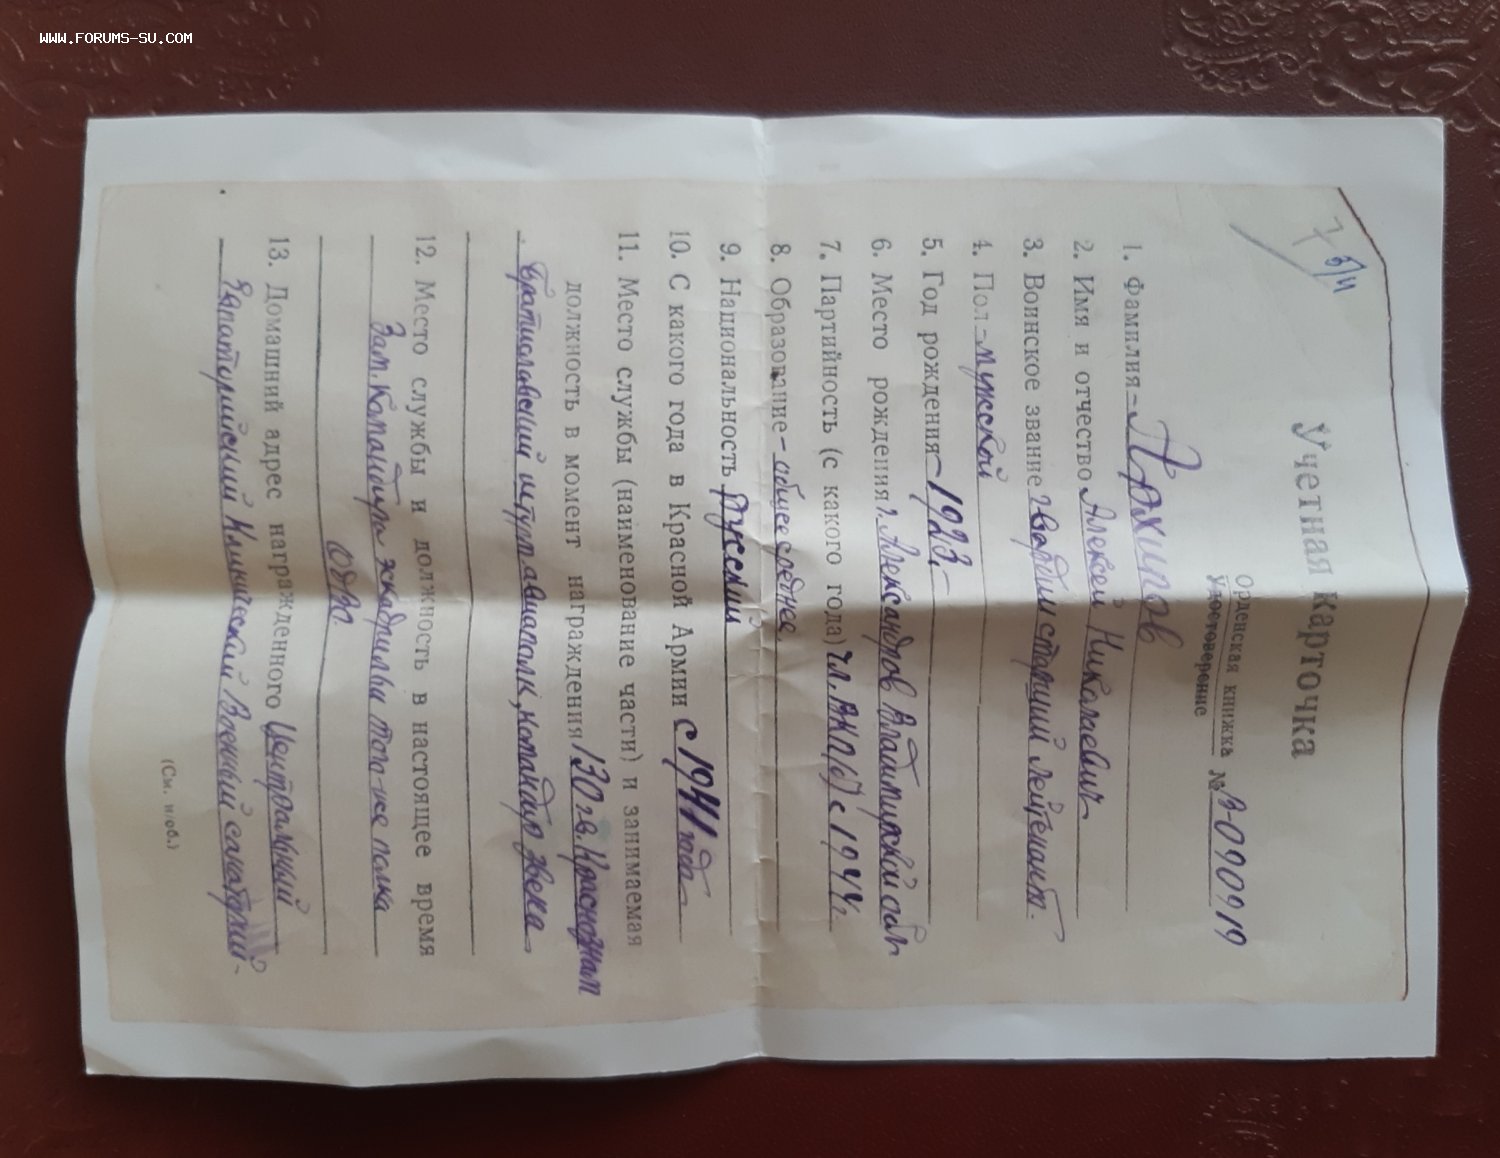 WWW.FORUMS-SU.COM
Учетная карточка
Орденская книжка № В-090919
Удостоверение
1. Фамилия – Архипов
2. Имя и отчество Алексей Николаевич
3. Воинское звание гвардии старший лейтенант.
4. Пол – мужской
5. Год рождения – 1923.–
6. Место рождения г. Александров Владимирской обл
7. Партийность (с какого года) чл. ВКП(б) с 1944 г.
8. Образование – общее среднее
9. Национальность русский
10. С какого года в Красной Армии с 1941 года
11. Место службы (наименование части) и занимаемая
должность в момент награждения 130 гв. Краснознам
Братиславский штурм авиаполк, командир звена
12. Место службы и должность в настоящее время
Зам. командира эскадрильи того-же полка
ОдВО.
13. Домашний адрес награжденного Центральный
Евпаторийский Клинический Военный санаторий
(См. н/об.)